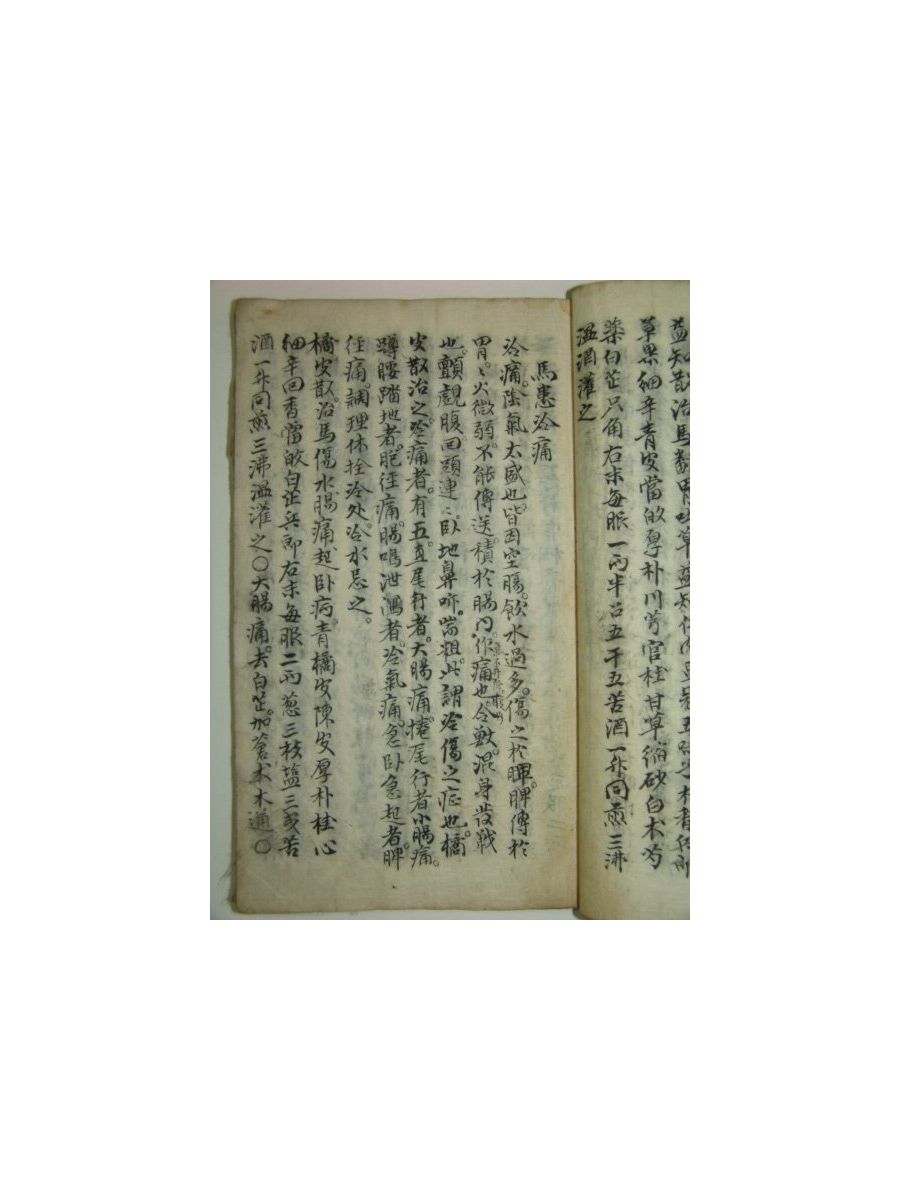 益知散治馬翻胃吐草益知
草果細辛青皮當皈厚朴川芎官桂甘草縮砂白术芍
藥白芷只角右末每服一兩半召五干五苦酒一升同煎三沸
溫酒灌之
馬患冷痛
冷痛陰氣太盛也皆因空腸飮水過多傷之於脾脾傳於
胃〻火微弱不能傳送積於腸內作痛也令獸渾身發戰
也顫覷腹回頭連〻臥地鼻咋喘粗此謂冷傷之症也橘
皮散治之冷痛者有五直尾行者大腸痛捲尾行者小腸痛
蹲腰踏地者胞徑痛腸鳴泄瀉者冷氣痛急臥急起者脾
徑痛調理休拴冷处冷水忌之
橘皮散治馬傷水腸痛起臥病靑橘皮陳皮厚朴桂心
細辛回香當皈白芷兵郞右末每服二兩葱三枝塩三戋苦
酒一升同煎三沸溫灌之〇大腸痛去白芷加蒼术木通〇